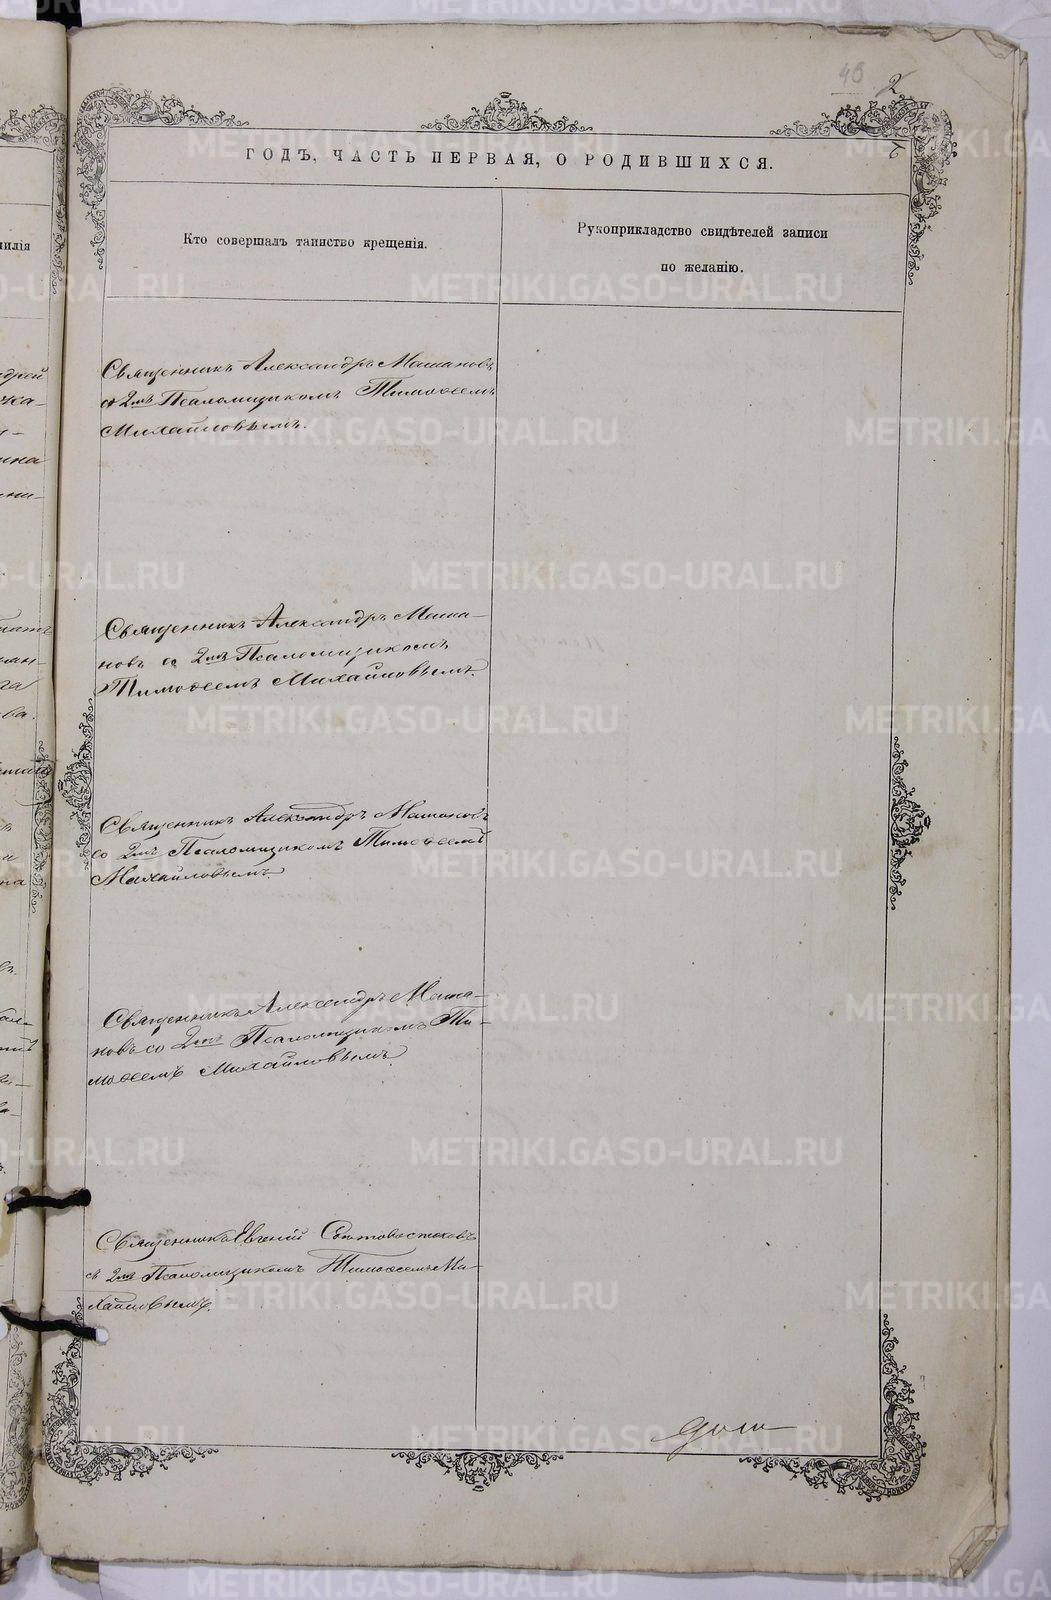 46
2
ГОДЪ, ЧАСТЬ ПЕРВАЯ, О РОДИВШИХСЯ.
Кто совершалъ таинство крещенія.
Рукоприкладство свидѣтелей записи
по желанію.
Священникъ Александръ Машановъ
со 2мъ Псаломщикомъ Тимоѳеемъ
Михайловымъ.
Священникъ Александръ Маша-
новъ со 2мъ Псаломщикомъ
Тимоѳеемъ Михайловымъ.
Священникъ Александръ Машановъ
со 2мъ Псаломщикомъ Тимоѳеемъ
Михайловымъ.
Священникъ Александръ Маша-
новъ со 2мъ Псаломщикомъ Ти-
моѳеемъ Михайловымъ.
Священникъ Евгеній
съ 2мъ Псаломщикомъ Тимоѳеемъ Ми-
хайловымъ.
METRIKI.GASO-URAL.RU